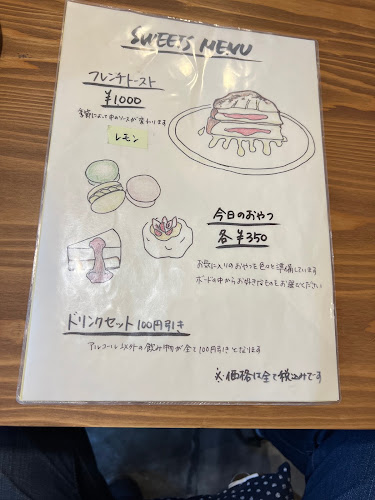 SWEETS MENU
フレンチトースト
¥1000
季節によって中のソースが変わります
レモン
今日のおやつ
各 ¥350
お気に入りのおやつを色々と準備しています
ボードの中からお好きなものをお選びください
ドリンクセット 100円引き
アルコール以外の飲み物が全て100円引きとなります
※価格は全て税込みです